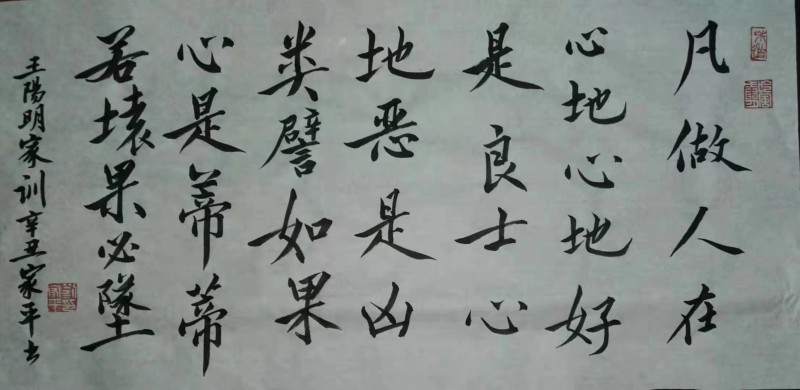 凡做人在
心地心地好
是良士心
地恶是凶
类譬如果
心是蒂蒂
若壊果必墜
王陽明家训辛丑家平书